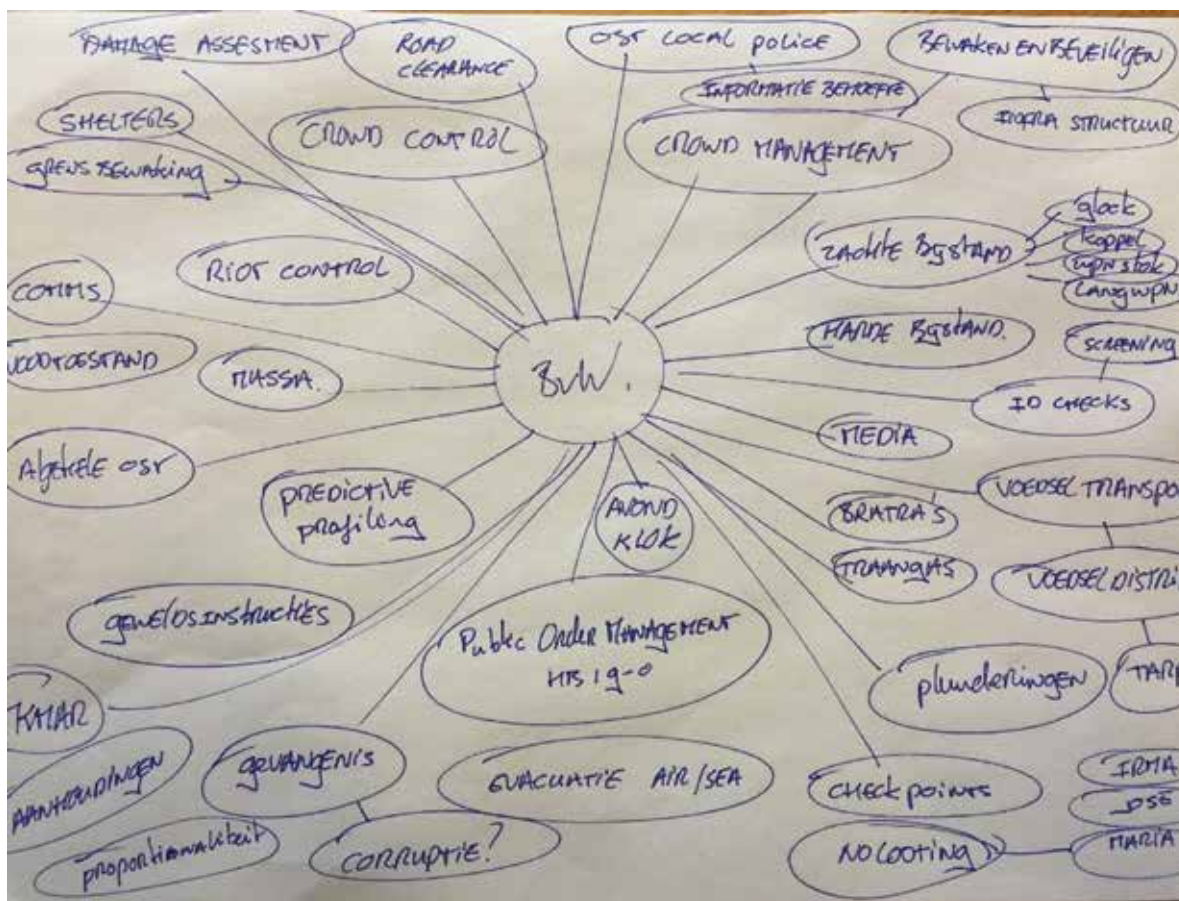 DAMAGE ASSESMENT
ROAD
CLEARANCE
OST LOCAL POLICE
INFORMATIE BEHOEFTE
BEWAKEN EN BEVEILIGEN
INFRA STRUCTUUR
SHELTERS
GRENSBEWAKING
CROWD CONTROL
CROWD MANAGEMENT
ZACHTE BIJSTAND
glock
koppel
WPNSTOK
LANGWPN
RIOT CONTROL
COMMS
HARDE BIJSTAND.
SCREENING
ID CHECKS
NOODTOESTAND
MASSA.
BvW.
MEDIA
Afgekele OST
PREDICTIVE
profiling
AVOND
KLOK
BRATRA'S
TRAANGAS
VOEDSELTRANSPO
VOEDSELDISTRI
TARP
geweldsinstructies
Public Order Management
HB 19-0
plunderingen
KMAR
AANHOUDINGEN
gevangenis
EVACUATIE AIR/SEA
CHECKPOINTS
IRMA
JOSÉ
MARIA
proportionaliteit
CORRUPTIE?
NO LOOTING